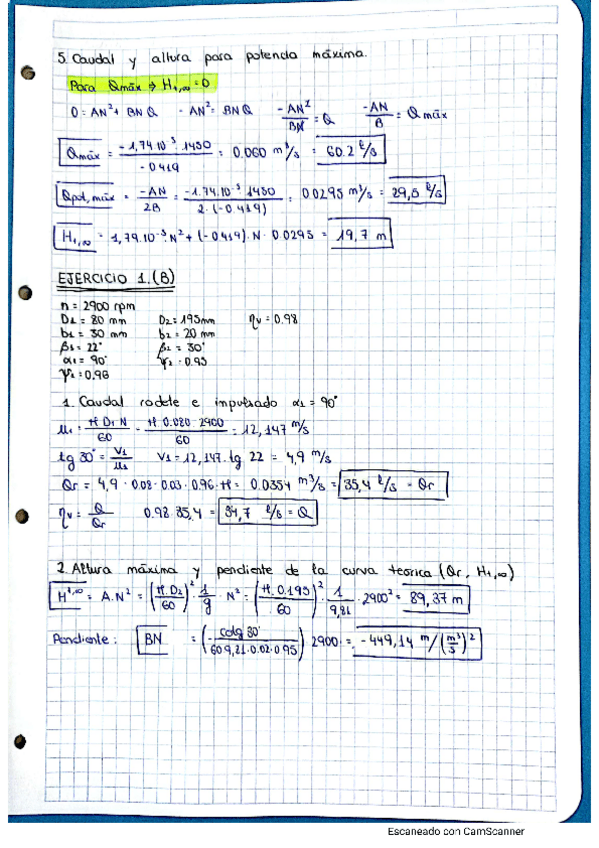 5. Caudal y altura para potencia máxima.
Para Qmáx ⇒ H₁,∞ = 0
0 = AN² + BNQ   -AN² = BNQ   -AN²/BN = Q   -AN/B = Qmáx
Qmáx = -1,74·10⁻⁵·1450/-0.419 = 0.060 m³/s = 60.2 ℓ/s
Qpot,máx = -AN/2B = -1.74·10⁻⁵·1450/2·(-0.419) = 0.0295 m³/s = 29,5 ℓ/s
H₁,∞ = 1,79·10⁻⁵·N² + (-0.419)·N·0.0295 = 19,7 m
EJERCICIO 1.(B)
n = 2900 rpm
D1 = 80 mm   D2 = 195mm   ηv = 0.98
b1 = 30 mm   b2 = 20 mm
β1 = 22°   β2 = 30°
α1 = 90°   φ2 = 0.95
φ1 = 0.96
1. Caudal rodete e impulsado α1 = 90°
u1 = π D1 N/60 = π·0.080·2900/60 = 12,147 m/s
tg 30° = V1/u1   V1 = 12,147·tg 22 = 4,9 m/s
Qr = 4,9·0.08·0.03·0.96·π = 0.0354 m³/s = 35,4 ℓ/s = Qr
ηv = Q/Qr   0.98·35,4 = 34,7 ℓ/s = Q
2. Altura máxima y pendiente de la curva teórica (Qr, H₁,∞)
H¹,∞ = A·N² = (π·D2/60)²·1/g·N² = (π·0.195/60)²·1/9,81·2900² = 89,37 m
Pendiente: BN = (-cotg 30°/60·9,81·0.02·0.95) 2900 = -449,14 m/(m³/s)²
Escaneado con CamScanner